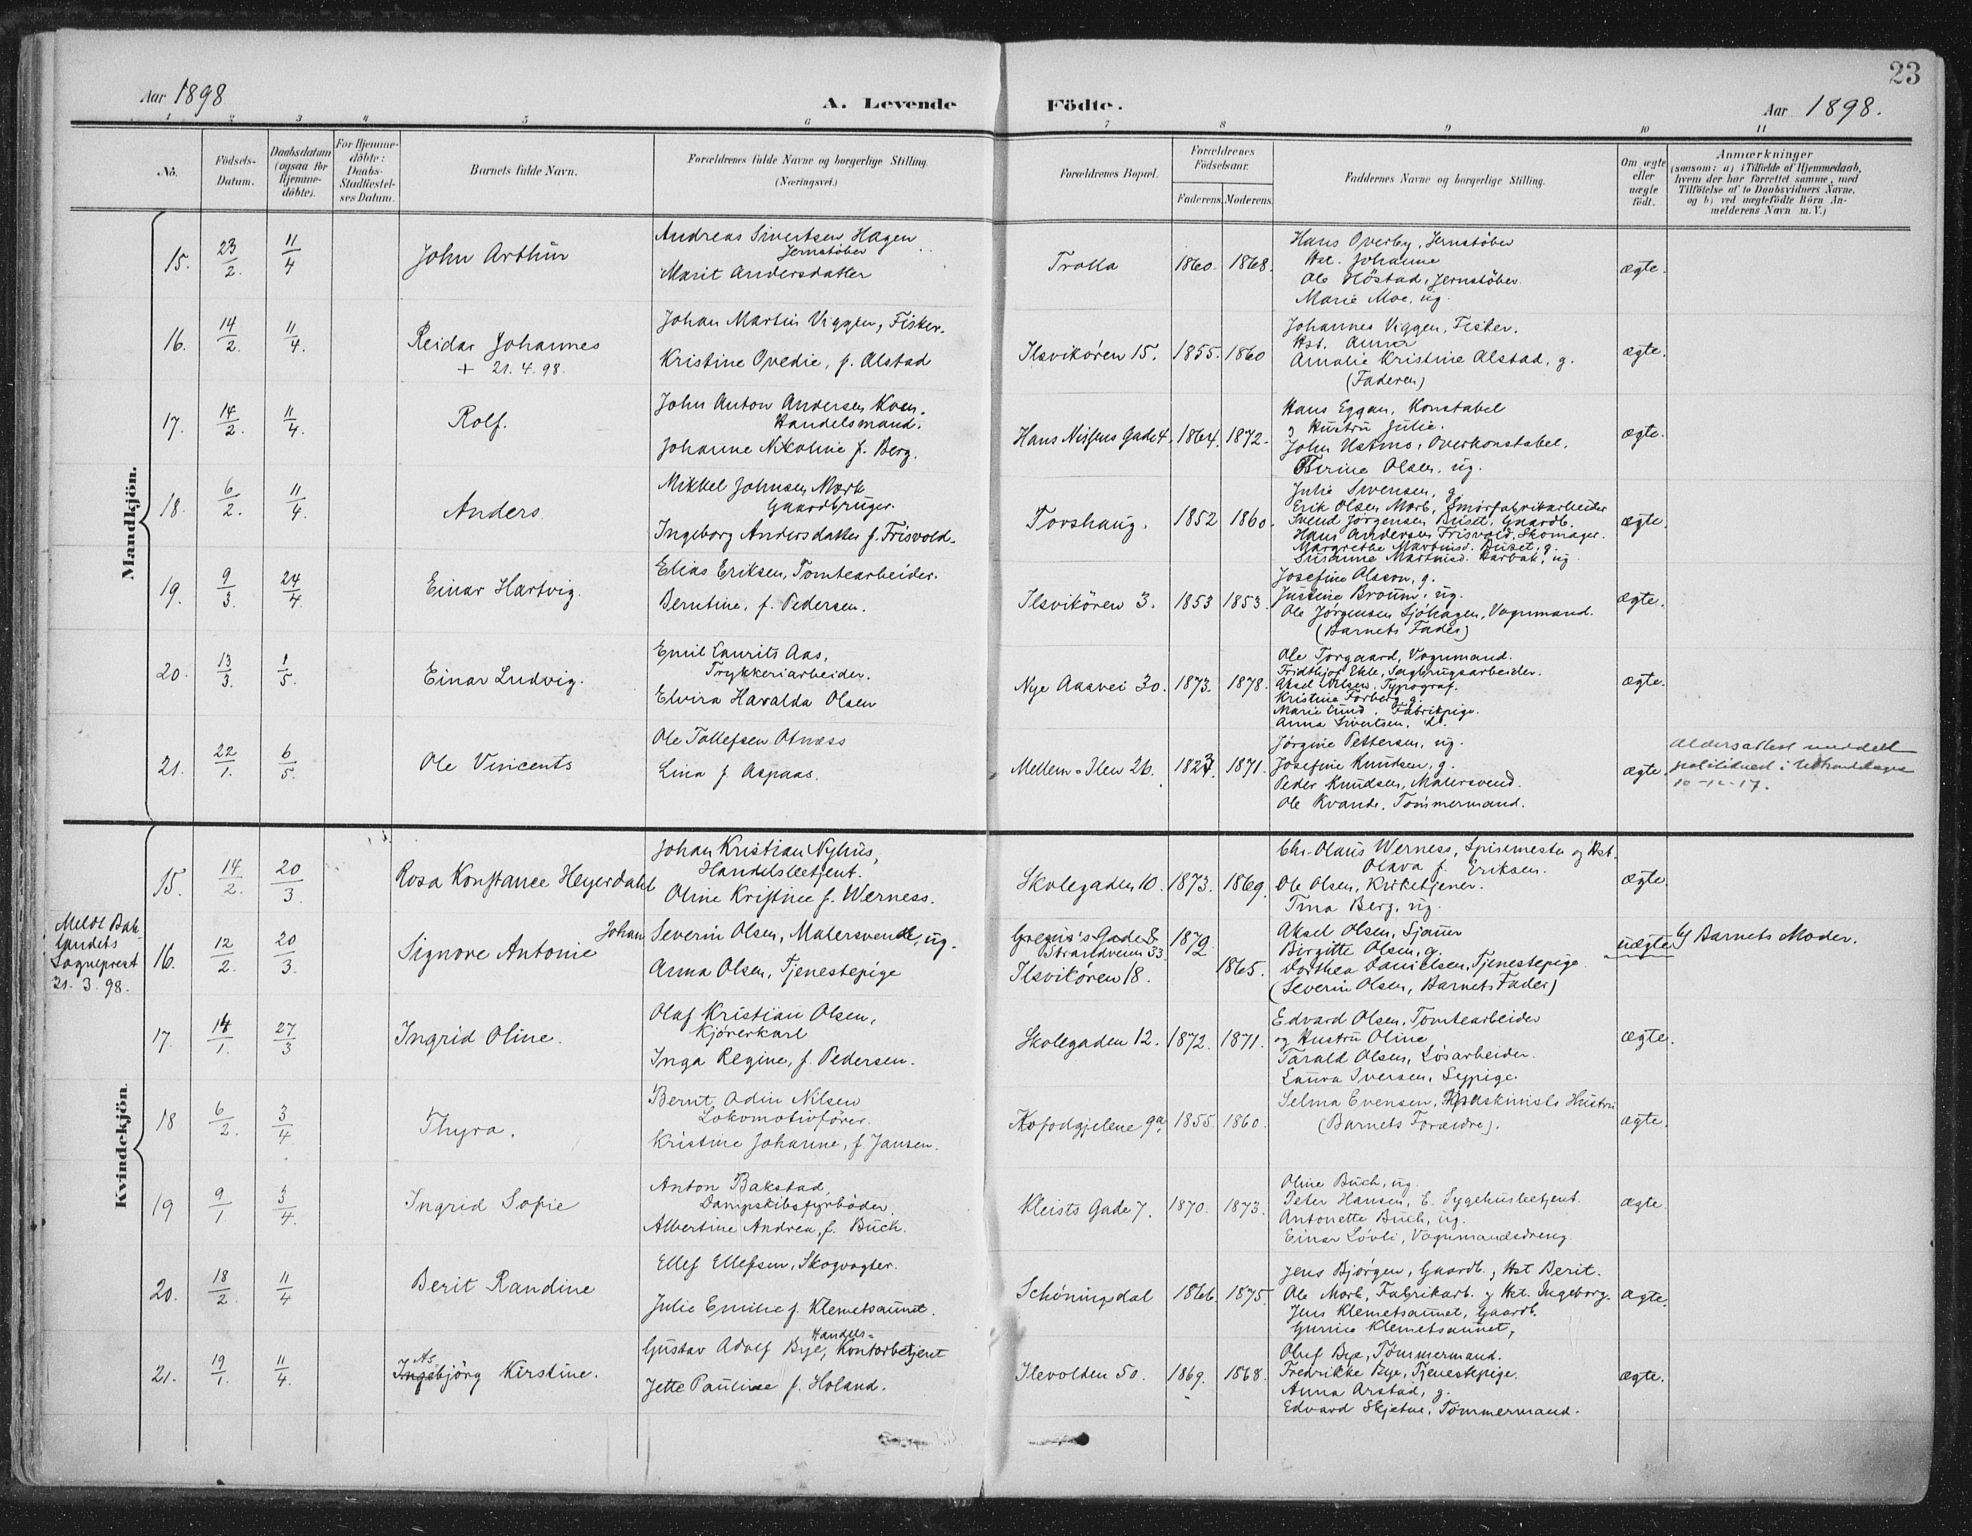 23
Aar 1898
A. Levende
Födte.
Aar 1898.
1 2 3 4 5 6 7 8 9 10 11
No.
Födsels-Datum.
Daabsdatum (ogsaa for Hjemmedöbte).
For Hjemmedöbte: Daabs-Stadfæstelses Datum.
Barnets fulde Navn.
Forældrenes fulde Navne og borgerlige Stilling. (Næringsvei.)
Forældrenes Bopæl.
Forældrenes Födselsaar.
Faderens. Moderens.
Faddernes Navne og borgerlige Stilling.
Om ægte eller uægte födt.
Anmærkninger
(saasom: a) i Tilfælde af Hjemmedaab, hvem der har forrettet samme, med Tilföielse af to Daabsvidners Navne, og b) ved uægtefödte Börn Anmelderens Navn m. V.)
Mandkjön.
15. 23/2. 11/4 John Arthur
Andreas Sivertsen Hagen
Jernstøber
Marit Andersdatter
Trolla 1860. 1868.
Hans Overby, Jernstøber
Hst. Johanne
Ole Høstad, Jernstøber
Marie Moe, ug.
ægte.
16. 14/2. 11/4. Reidar Johannes
+ 21.4.98.
Johan Martin Viggen, Fisker.
Kristine Ovedie, f. Alstad
Ilsvikören 15. 1855. 1860
Johannes Viggen, Fisker.
Hst. Anna
Amalie Kristine Alstad, g.
(Faderen)
ægte.
17. 14/2. 11/4. Rolf.
John Anton Andersen Kven.
Handelsmand.
Johanne Nikoline f. Berg.
Hans Nissens Gade 4. 1864. 1872.
Hans Eggan, Konstabel
og Hustru Julie.
John Ustmo, Overkonstabel.
Terine Olsen, ug.
ægte.
18. 6/2. 11/4. Anders
Mikkel Johnsen Mork
Gaardbruger.
Ingeborg Andersdatter f. Frisvold.
Forshaug. 1852 1860.
Julie Svensen, g.
Erik Olsen Mork, Smørfabrikarbeider
Svend Jørgensen Buset, Gaardb.
Hans Andersen Frisvold, Skomager.
Margrethe Martinsd. Buset, g.
Susanne Martinsd. Harbak, ug
ægte.
19. 9/3. 24/4. Einar Hartvig.
Elias Eriksen, Tomtearbeider.
Berntine, f. Pedersen.
Ilsvikören 3. 1853 1853.
Josefine Olsson, g.
Justine Broum, ug.
Ole Jørgensen Sjøhagen, Vognmand.
(Barnets Fader)
ægte.
20. 13/3. 1/5. Einar Ludvig.
Emil Laurits Aas,
Trykkeriarbeider.
Elvira Havalda Olsen
Nye Aasvei 30. 1873. 1878.
Ole Torgaard, Vognmand.
Fridthjof Ekle, Sagbrugsarbeider.
Aksel Nilsen, Typograf.
Kristine Forberg, g.
Marie Lund, Fabrikpige.
Anna Sivertsen, do.
ægte.
21. 22/1. 6/5. Ole Vincents
Ole Tollefsen Otness
Lina f. Aspaas.
Mellem-Ilen 26. 1827. 1871.
Jørgine Pettersen, ug.
Josefine Knudsen, g.
Peder Knudsen, Malersvend.
Ole Kvande, Tømmermand.
ægte.
Aldersattest meddelt
10-12-17.
Kvindekjön.
15. 14/2. 20/3 Rosa Konstance Heyerdahl
Johan Kristian Nyhus,
Handelsbetjent.
Oline Kristine f. Werness.
Skolegaden 10. 1873. 1869.
Chr. Olaus Werness, Spisemester og Hst.
Olava f. Eriksen.
Ole Olsen, Kirketjener.
Tina Berg, ug.
ægte.
Meldt Bak-
landets
Sogneprest
31.3.98.
16. 12/2. 20/3. Signore Antonie
Johan Severin Olsen, Malersvend, ug.
Anna Olsen, Tjenestepige
Gregus's Gade 8
Strandveien 33
Ilsvikören 18. 1872 1865.
Aksel Olsen, Sjauer
Birgitte Olsen, g.
Dorthea Danielsen, Tjenestepige
(Severin Olsen, Barnets Fader)
uægte
b) Barnets Moder.
17. 14/1. 27/3 Ingrid Oline.
Olaf Kristian Olsen,
Kjørerkarl
Inga Regine, f. Pedersen.
Skolegaden 12. 1872. 1871.
Edvard Olsen, Tomtearbeider
og Hustru Oline
Tarald Olsen, Løsarbeider.
Laura Iversen, Sypige
ægte.
18 6/2. 3/4. Thyra.
Bernt Odin Nilsen
Lokomotivfører.
Kristine Johanne, f. Jansen.
Kofodgjelene 9a. 1855. 1860.
Selma Evensen, Maskinists Hustru
(Barnets Forældre).
ægte.
19 9/1. 3/4. Ingrid Sofie
Anton Bakstad,
Dampskibsfyrbøder.
Albertine Andrea, f. Buch.
Kleists Gade 7. 1870. 1873.
Oline Buch, ug.
Peter Hansen, E. Sygehusbetjent.
Antonette Buch, ug.
Einar Løvli, Vognmandsdreng
ægte.
20. 18/2. 11/4 Berit Randine
Ellef Ellefsen, Skogvogter.
Julie Emilie f. Klemetsaunet.
Schöningsdal 1866. 1875.
Jens Bjørgen, Gaardb. og Hst Berit.
Ole Mork, Fabrikarb. og Hst. Ingeborg.
Jens Klemetsaunet, Gaardb.
Gurine Klemetsaunet,
ægte.
21. 19/1. 11/4. As
Ingebjörg Kirstine.
Gustav Adolf Bye, Handels-
Kontorbetjent
Jette Pauline f. Holand.
Ilevolden 50. 1869. 1868.
Oluf Bye, Tømmermand.
Fredrikke Bye, Tjenestepige.
Anna Arstad, g.
Edvard Skjetne, Tømmermand.
ægte.